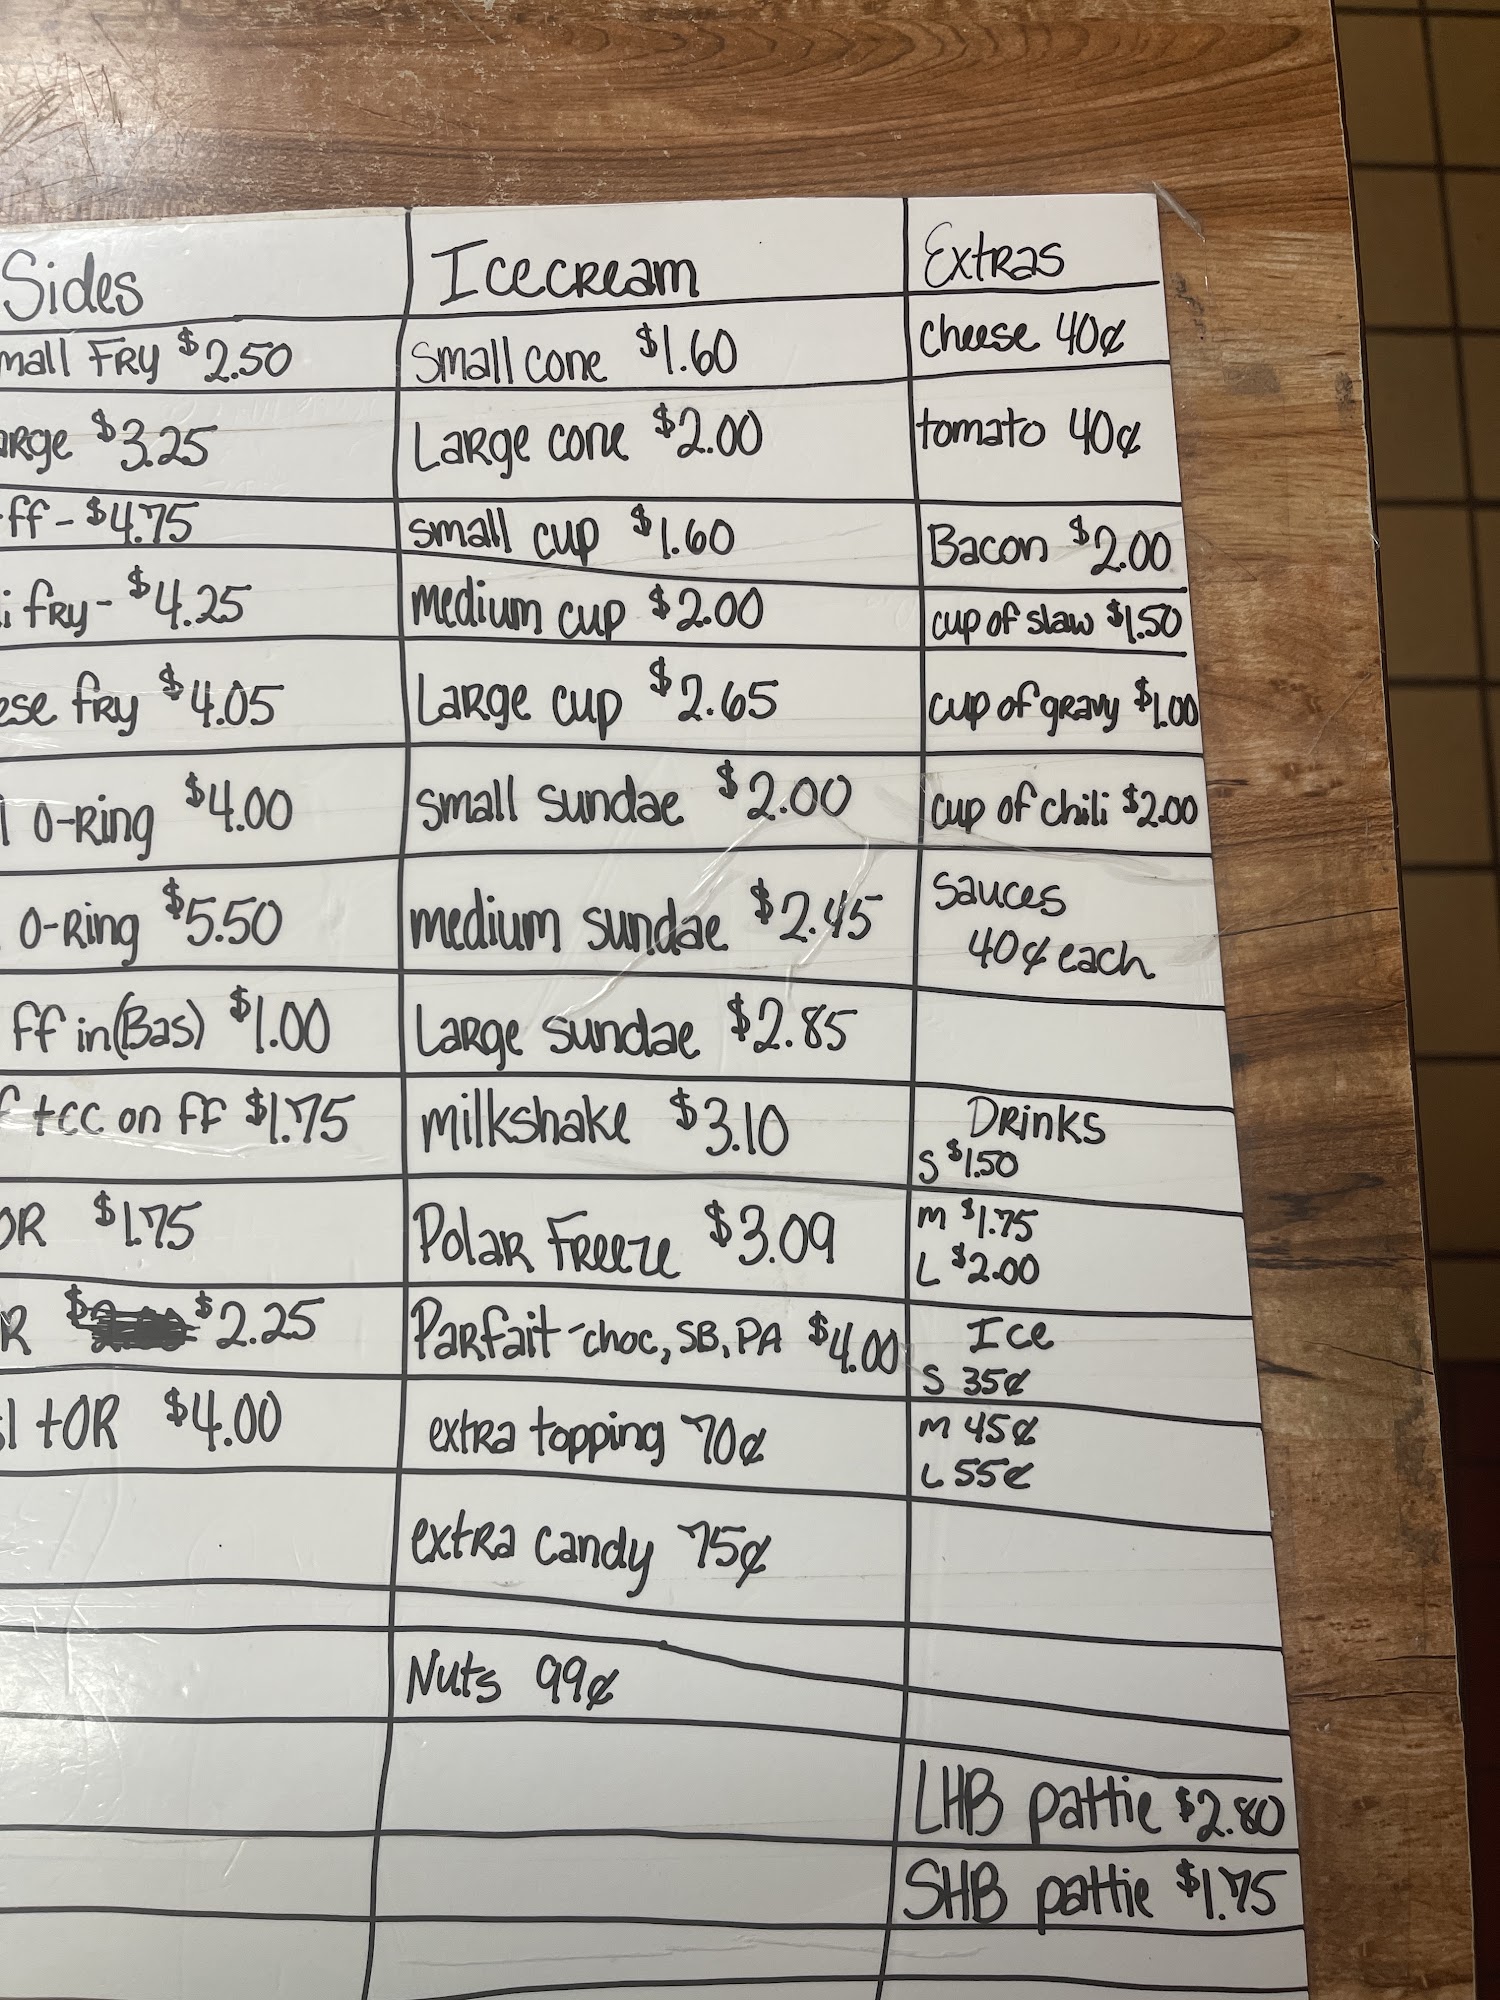 Sides
mall Fry $2.50
arge $3.25
ff - $4.75
i fry - $4.25
ese fry $4.05
l O-Ring $4.00
O-Ring $5.50
ff in (Bas) $1.00
f tcc on ff $1.75
OR $1.75
R $2.25
l tOR $4.00
Icecream
Small cone $1.60
Large cone $2.00
small cup $1.60
medium cup $2.00
Large cup $2.65
small sundae $2.00
medium sundae $2.45
Large sundae $2.85
milkshake $3.10
Polar Freeze $3.09
Parfait - choc, SB, PA $4.00
extra topping 70¢
extra candy 75¢
Nuts 99¢
Extras
cheese 40¢
tomato 40¢
Bacon $2.00
cup of slaw $1.50
cup of gravy $1.00
cup of chili $2.00
Sauces
40¢ each
Drinks
S $1.50
m $1.75
L $2.00
Ice
S 35¢
m 45¢
L 55¢
LHB pattie $2.80
SHB pattie $1.75